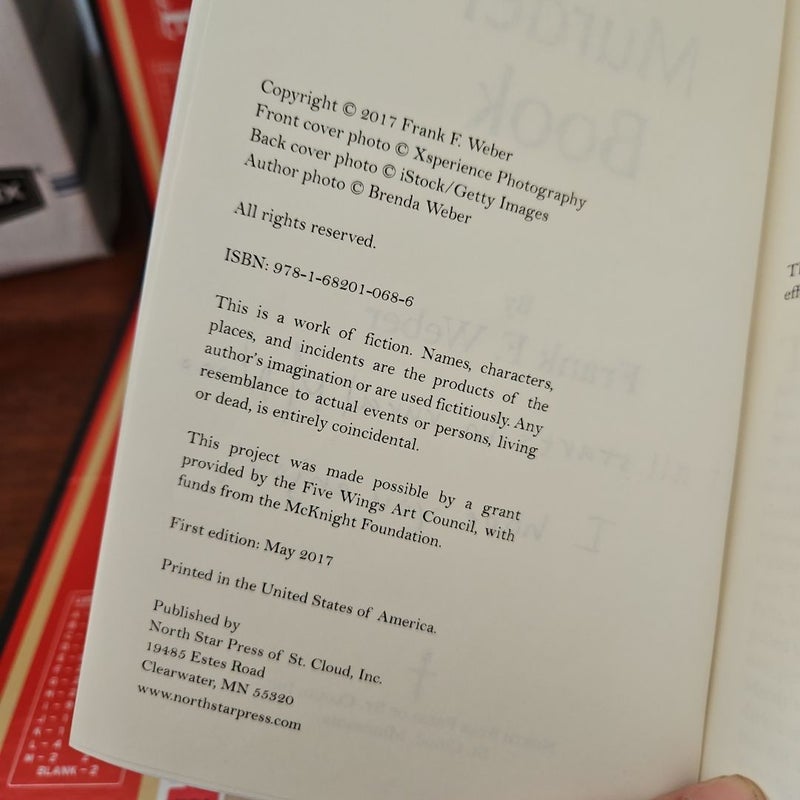 Copyright © 2017 Frank F. Weber
Front cover photo © Xsperience Photography
Back cover photo © iStock/Getty Images
Author photo © Brenda Weber
All rights reserved.
ISBN: 978-1-68201-068-6
This is a work of fiction. Names, characters,
places, and incidents are the products of the
author's imagination or are used fictitiously. Any
resemblance to actual events or persons, living
or dead, is entirely coincidental.
This project was made possible by a grant
provided by the Five Wings Art Council, with
funds from the McKnight Foundation.
First edition: May 2017
Printed in the United States of America.
Published by
North Star Press of St. Cloud, Inc.
19485 Estes Road
Clearwater, MN 55320
www.northstarpress.com
Murder
Book
By
Frank F. Weber
BLANK-2